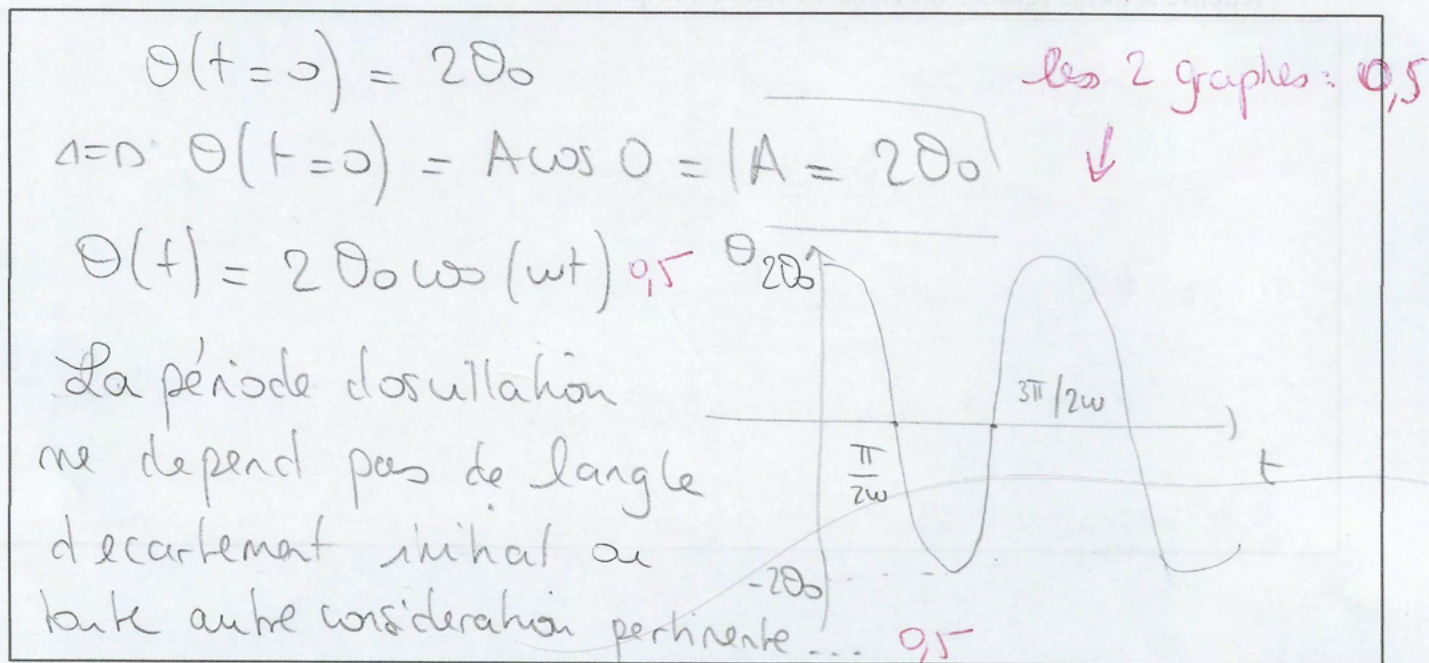 θ(t=0) = 2θ₀
les 2 graphes : 0,5
⇔ θ(t=0) = A cos 0 = A = 2θ₀
θ(t) = 2θ₀ cos (ωt) 0,5
θ
2θ₀
La période doscillation
3π/2ω
ne depend pas de langle
π/2ω
t
d ecartement initial ou
-2θ₀
toute autre consideration pertinente ... 0,5